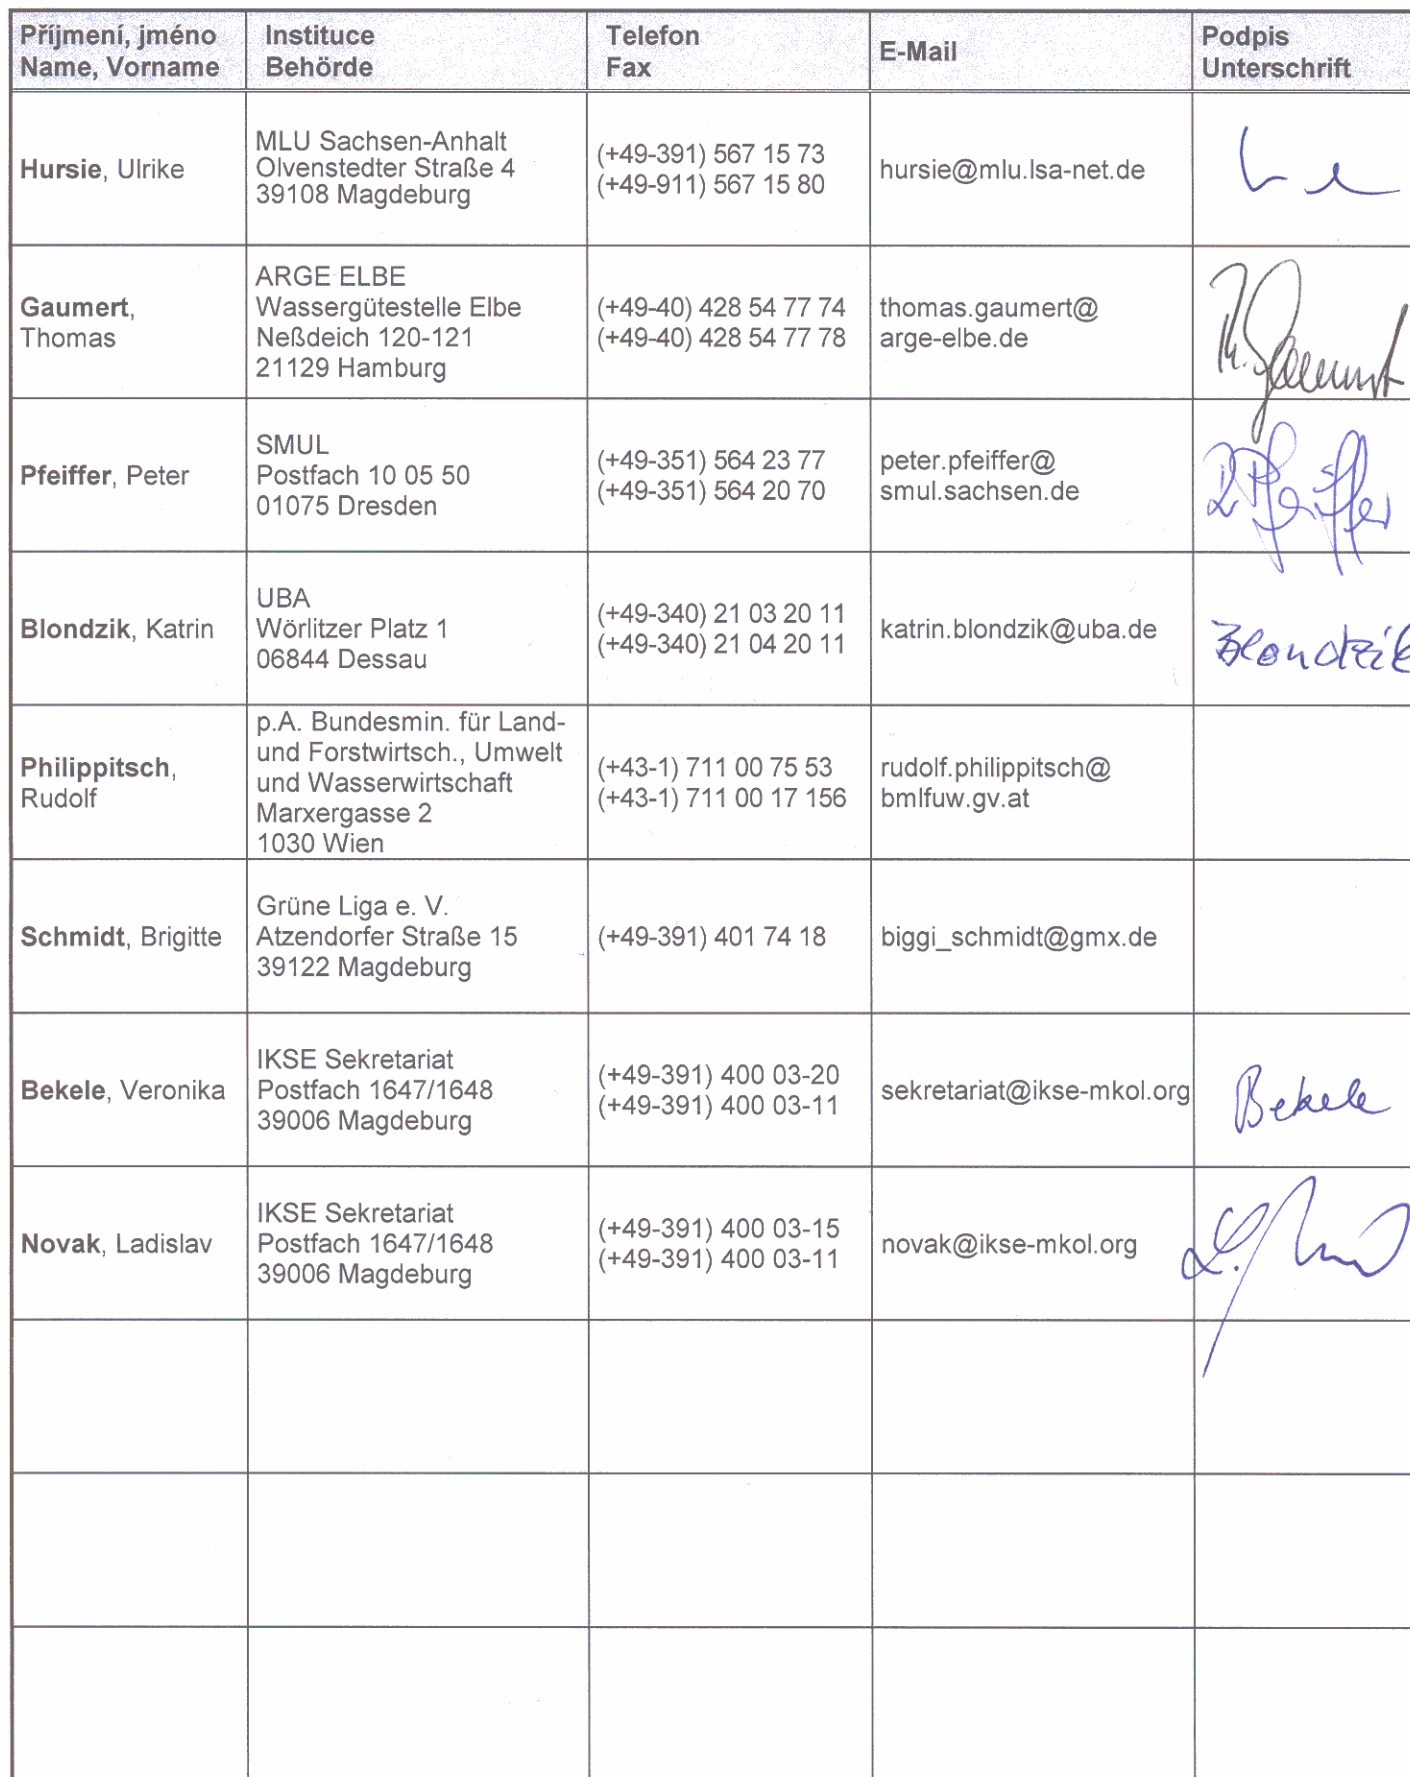 Příjmení, jméno
Name, Vorname
Instituce
Behörde
Telefon
Fax
E-Mail
Podpis
Unterschrift
Hursie, Ulrike
MLU Sachsen-Anhalt
Olvenstedter Straße 4
39108 Magdeburg
(+49-391) 567 15 73
(+49-911) 567 15 80
hursie@mlu.lsa-net.de
Gaumert,
Thomas
ARGE ELBE
Wassergütestelle Elbe
Neßdeich 120-121
21129 Hamburg
(+49-40) 428 54 77 74
(+49-40) 428 54 77 78
thomas.gaumert@
arge-elbe.de
Th. Gaumert
Pfeiffer, Peter
SMUL
Postfach 10 05 50
01075 Dresden
(+49-351) 564 23 77
(+49-351) 564 20 70
peter.pfeiffer@
smul.sachsen.de
Pfeiffer
Blondzik, Katrin
UBA
Wörlitzer Platz 1
06844 Dessau
(+49-340) 21 03 20 11
(+49-340) 21 04 20 11
katrin.blondzik@uba.de
Blondzik
Philippitsch,
Rudolf
p.A. Bundesmin. für Land-
und Forstwirtsch., Umwelt
und Wasserwirtschaft
Marxergasse 2
1030 Wien
(+43-1) 711 00 75 53
(+43-1) 711 00 17 156
rudolf.philippitsch@
bmlfuw.gv.at
Schmidt, Brigitte
Grüne Liga e. V.
Atzendorfer Straße 15
39122 Magdeburg
(+49-391) 401 74 18
biggi_schmidt@gmx.de
Bekele, Veronika
IKSE Sekretariat
Postfach 1647/1648
39006 Magdeburg
(+49-391) 400 03-20
(+49-391) 400 03-11
sekretariat@ikse-mkol.org
Bekele
Novak, Ladislav
IKSE Sekretariat
Postfach 1647/1648
39006 Magdeburg
(+49-391) 400 03-15
(+49-391) 400 03-11
novak@ikse-mkol.org